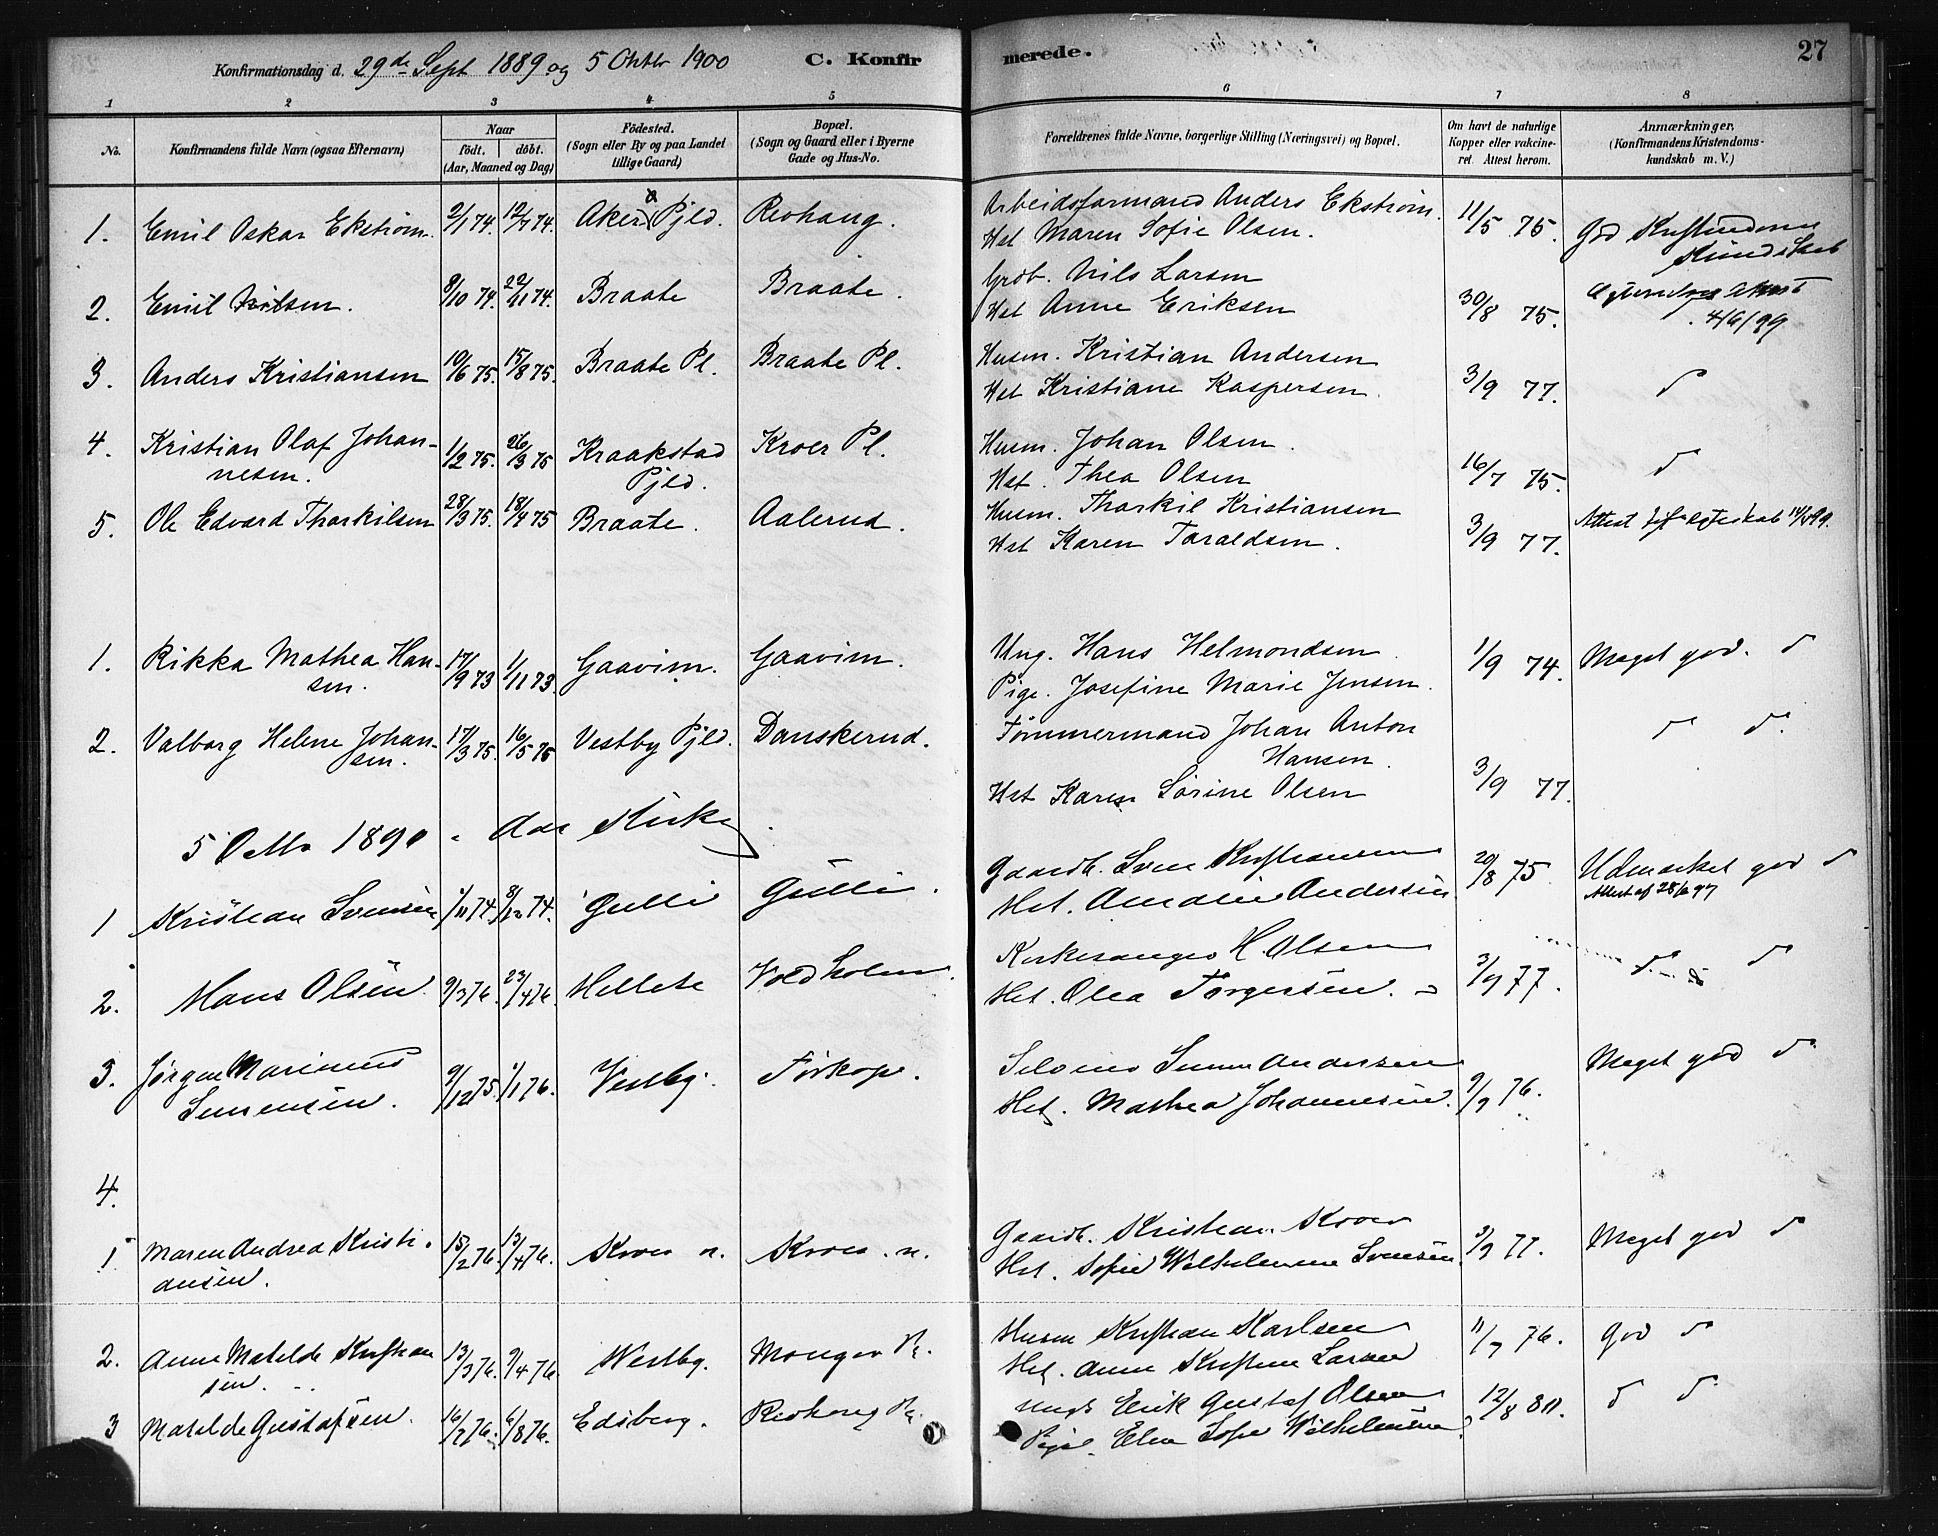 Konfirmationsdag d. 29de Sept 1889 og 5 Oktbr 1900 C. Konfirmerede. 27
1 2 3 4 5 6 7 8
No. Konfirmandens fulde Navn (ogsaa Efternavn) Naar födt. döbt. (Aar, Maaned og Dag) Födested. (Sogn eller By og paa Landet tillige Gaard) Bopæl. (Sogn og Gaard eller i Byerne Gade og Hus-No. Forældrenes fulde Navne, borgerlige Stilling (Næringsvei) og Bopæl. Om havt de naturlige Kopper eller vakcineret. Attest herom. Anmærkninger. (Konfirmandens Kristendomskundskab m. V.)
1. Emil Oskar Ekstrøm. 2/1 74. 12/4 74. Aker Pjld. Revhaug. Arbeidsformand Anders Ekström. 11/5 75. God Kristendoms
Hst Maren Sofie Olsen. Kundskab
2. Emil Nilsen. 8/10 74. 22/11 74. Braate Braate. Grdb. Nils Larsen
Hst Anne Eriksen 30/8 75. 4/6/99
3. Anders Kristiansen 10/6 75. 15/8 75. Braate Pl. Braate Pl. Husm. Kristian Andersen
Hst Kristiane Kaspersen. 3/9 77. d
4. Kristian Olaf Johan- 1/2 75. 26/3 75 Kraakstad Kroer Pl. Husm. Johan Olsen.
nesen. Pjld. Hst. Thea Olsen 16/7 75. d
5. Ole Edvard Thorkilsen 28/3 75. 18/4 75 Braate. Aalerud. Husm. Thorkil Kristiansen Attest
Hst Karen Taraldsen. 3/9 77.
1. Rikka Mathea Han- 17/9 73 1/11 73. Gaavim. Gaavim. Ung. Hans Helmondsen. 1/9 74. Meget god. d
sen. Pige. Josefine Marie Jensen.
2. Valborg Helene Johan- 17/3 75. 16/5 75 Vestby Pjld. Danskerud. Tømmermand Johan Anton d d.
sen. Hansen.
Hst Karen Sørine Olsen 3/9 77.
5 Octbr 1890 - Aas Kirke.
1 Kristian Svensen 1/11 74. 8/12 74. Gulli Gulli. Gaardb. Sven Kristiansen 20/8 75. Udmærket god d
Hst. Amalie Andersen Attest af 28/6 97
2. Hans Olsen. 9/3 76. 23/4 76. Voldholm. Kirkesanger H. Olsen 3/9 77. d. d
Hst. Olea Torgersen.
3. Jørgen Marinus 9/12 75. 1/1 76. Vestby. Torkop. Andersen Meget god d
Hst. Mathea Johannesen. 9/9 76.
4.
1. Maren Andrea Kristi- 15/2 76. 13/4 76. Kroer n. Kroer. n. Gaardb. Kristian Kroer 3/9 77. Meget god d
ansen. Hst. Sofie Wilhelmine Svensen.
2. Anne Matilde Kristian 13/3 76. 9/4 76. Westby. Husm Kristian Karlsen 11/7 76. God d
sen. Hst. Anne Kristine Larsen
3 Matilde Gustafsen. 16/2 76. 6/8 76. Edsberg. Revhaug Pl. Ungk Erik Gustaf Olsen 12/8 80. d d
Pige. Wilhelmsen